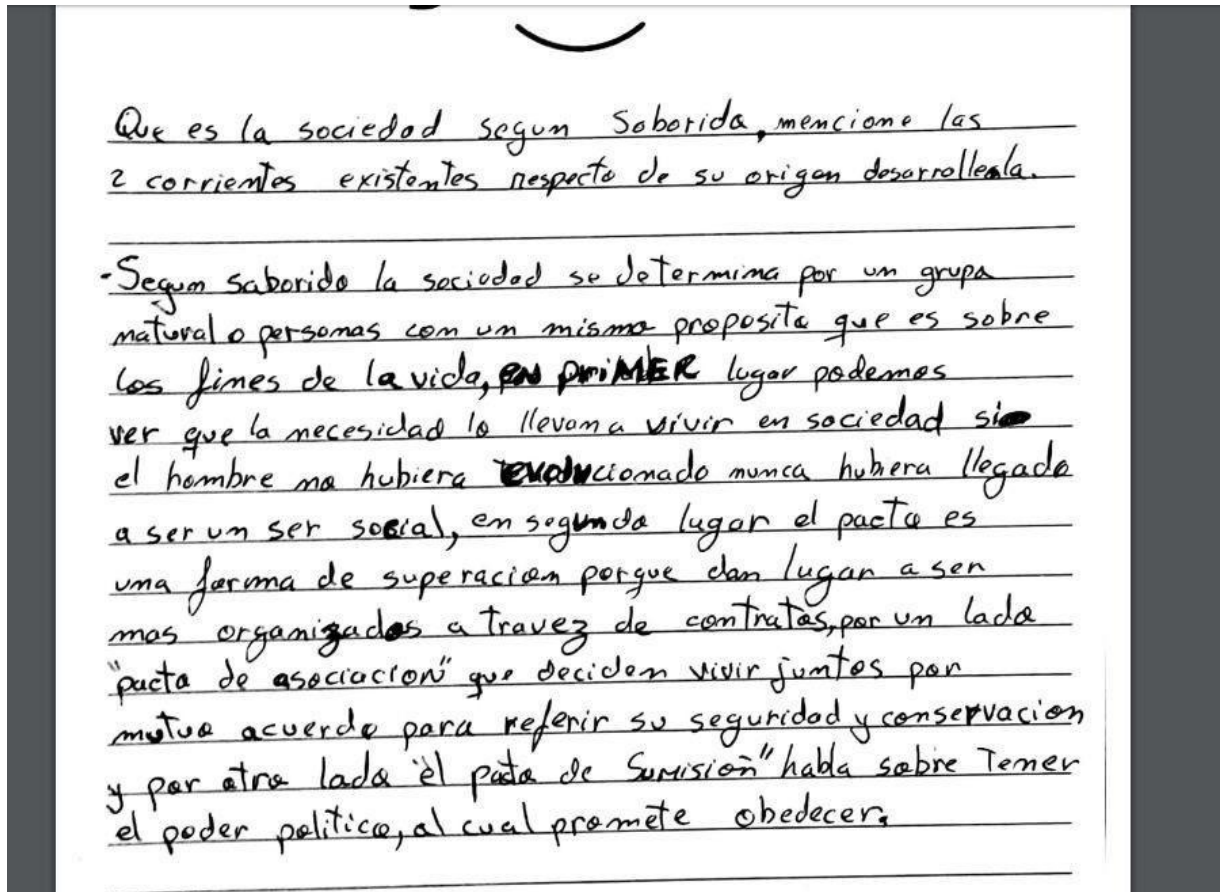 Que es la sociedad segun Saborida, mencione las
2 corrientes existentes respecto de su origen desarrollela.
-Segun saborido la sociedad se determina por un grupo
natural o personas con un mismo proposito que es sobre
los fines de la vida, en priMER lugar podemos
ver que la necesidad lo llevan a vivir en sociedad si
el hombre no hubiera evolucionado nunca hubiera llegado
a ser un ser social, en segundo lugar el pacto es
una forma de superacion porque dan lugar a ser
mas organizados a travez de contratos, por un lado
"pacto de asociacion" que deciden vivir juntos por
mutuo acuerdo para referir su seguridad y conservacion
y por otro lado "el pacto de Sumision" habla sobre Temer
el poder politico, al cual promete obedecer.